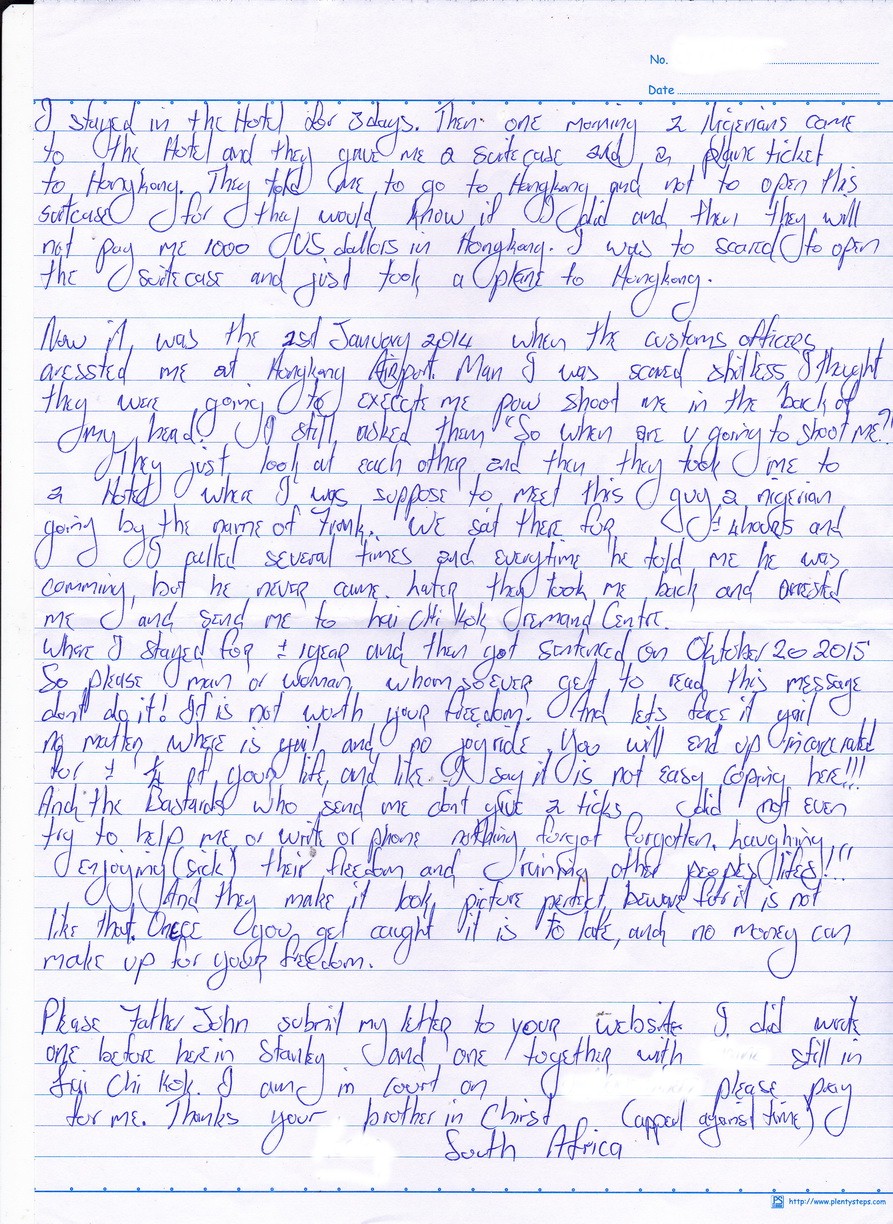 No.
Date
I stayed in the Hotel for 3days. Then one morning 2 Nigerians came
to the Hotel and they gave me a suitecase and a plane ticket
to Hongkong. They told me to go to Hongkong and not to open this
suitcase for they would know if I did and then they will
not pay me 1000 US dallors in Hongkong. I was to scared to open
the suitecase and just took a plane to Hongkong.
Now it was the 21st January 2014 when the customs officers
aressted me at Hongkong Airport. Man I was scared shitless I thught
they were going to execcte me pow shoot me in the back of
my head. I still asked them "So when are u going to shoot me?"
They just look at each other and then they took me to
a Hotel where I was suppose to meet this guy a nigerian
going by the name of Frank. We sat there for ± 4hours and
I called several times and everytime he told me he was
comming, but he never came. Later they took me back and arrested
me and send me to Lai Chi Kok remand Centre.
Where I stayed for ± 1year and then got sentenced on Oktober 20 2015
So please man or woman whomsoever get to read this message
dont do it! It is not worth your freedom! And lets face it yail
no matter where is yail and no joyride, you will end up incarcerated
for ± of your life, and like I say it is not easy coping here!!!
And the Bastards who send me dont give a ticks did not even
try to help me, or write or phone nothing forgot forgotten. Laughing
enjoying (sick) their freedom and ruining other peoples lifes!!!
And they make it look picture perfect, beware for it is not
like that. Onece you get caught it is to late, and no money can
make up for your freedom.
Please Father John submit my letter to your website I did wrote
one before here in Stanley and one together with still in
Lai Chi Kok. I am in court on please pray
for me. Thanks your brother in Chirst (appeal against time)
South Africa
PS http://www.plentysteps.com